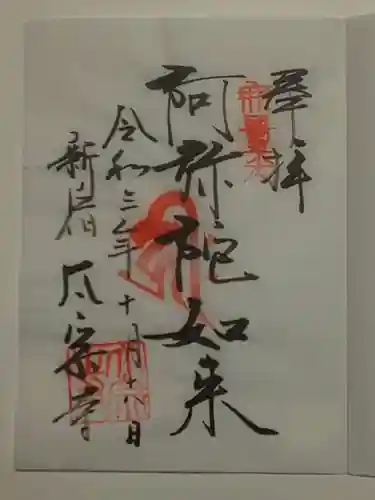 奉拝
阿弥陀如来
令和三年十月十八日
新宿
宗寺